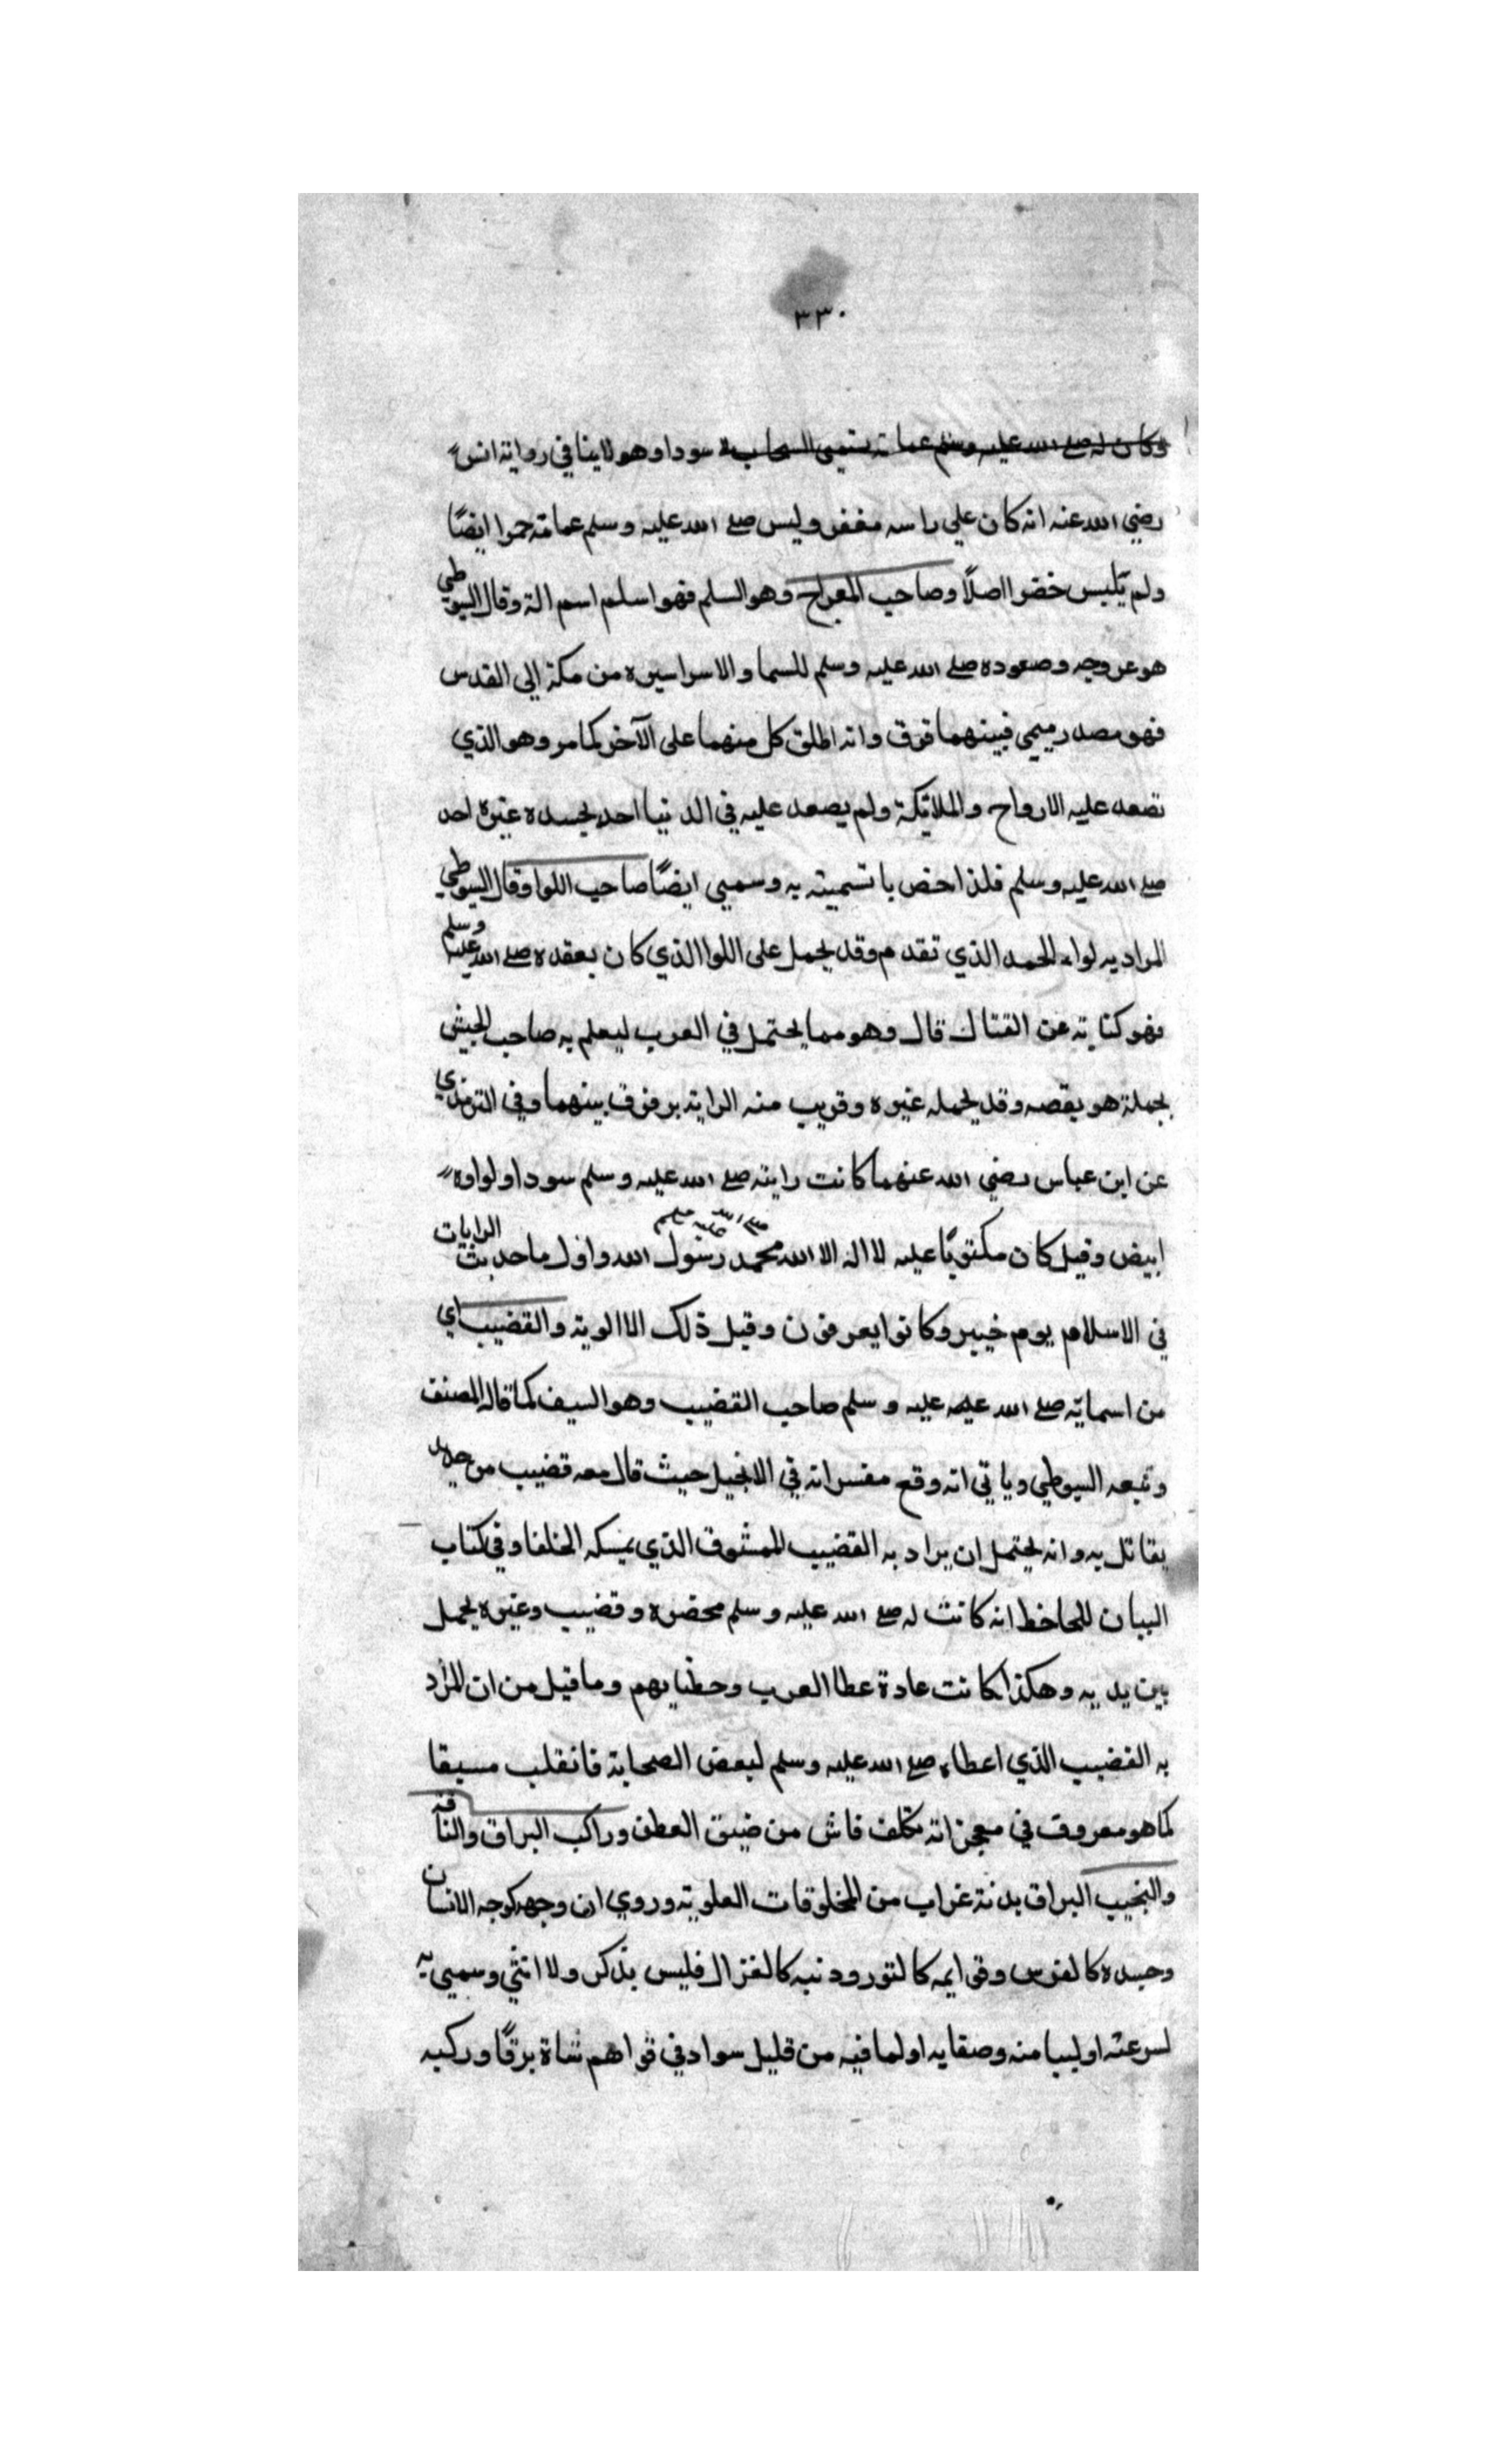 ٣٣٠
وكان له صلے الله عليه وسلم عمامة تسمى السحاب سودا وهو لاينافي رواية انس
رضي الله عنه انه كان علي راسه مغفر ولبس صلے الله عليه وسلم عمامة حمرا ايضًا
ولم يلبس خضرا اصلًا وصاحب المعراج وهو السلم فهو اسلم اسم الة وقال السيوطي
هو عروجه وصعوده صلے الله عليه وسلم للسما والاسرا سيره من مكة الي القدس
فهو مصدر ميمي فبينهما فرق وانه اطلق كل منهما على الآخر كما مر وهو الذي
تصعد عليه الارواح والملائكة ولم يصعد عليه في الدنيا احد بجسده غيره احد
صلے الله عليه وسلم فلذا خص با تسميته به وسمي ايضًا صاحب اللوا وقال السيوطي
المراد به لواء الحمد الذي تقدم وقد يحمل على اللوا الذي كان يعقده صلے الله عليه وسلم
فهو كناية عن القتال قال وهو مما يحتمل في العرب ليعلم به صاحب الجيش
بحملة هو بقصه وقد يحمله غيره وقريب منه الراية بر فرق بينهما وفي الترمذي
عن ابن عباس رضي الله عنهما كانت رايته صلے الله عليه وسلم سودا ولواوه
ابيض وقيل كان مكتوبًا عليه لا اله الا الله محمد رسول الله صلے الله عليه وسلم واول ما حدثت الرايات
في الاسلام يوم خيبر وكانوا يعرفون وقبل ذلك الا الوية والقضيب اي
من اسمايه صلے الله عليه عليه وسلم صاحب القضيب وهو السيف كما قاله المصنف
وتبعه السيوطي وياتي انه وقع مفسرا في الانجيل حيث قال معه قضيب من حديد
يقاتل به وانه يحتمل ان يراد به القضيب الممشوق الذي يمسكه الخلفا وفي كتاب
البيان للجاحظ انه كانت له صلے الله عليه وسلم مخضرة وقضيب وغيره يحمل
بين يديه وهكذا كانت عادة عظا العرب وخطبايهم وما قيل من ان المراد
به القضيب الذي اعطاه صلے الله عليه وسلم لبعض الصحابة فانقلب سيفا
كما هو معروف في معجزاته تكلف فاش من ضيق العطن وراكب البراق والناقة
والنجيب البراق بدنة غراب من المخلوقات العلوية وروي ان وجهه كوجه الانسان
وجسده كالفرس وقوايمه كالثور وذنبه كالغزال فليس بذكر ولا انثي وسمي به
لسرعته او لبيا منه وصفايه او لما فيه من قليل سواد في قواهم شاة برقًا وركبه